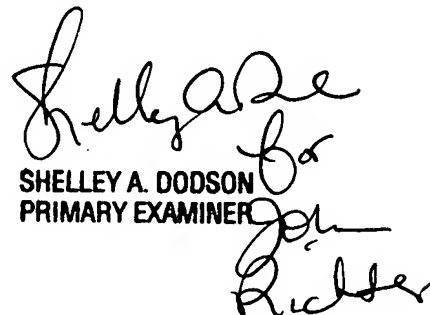 Shelley A. D
for
SHELLEY A. DODSON
PRIMARY EXAMINER
John
Richter